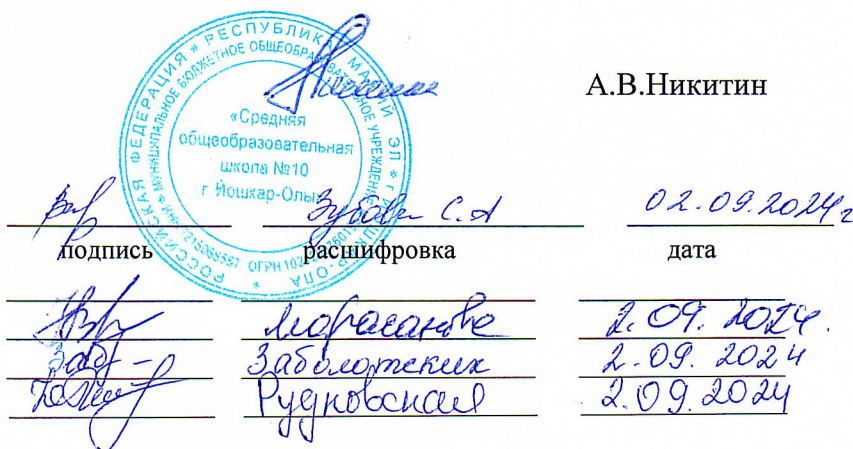 А.В.Никитин
РОССИЙСКАЯ ФЕДЕРАЦИЯ * РЕСПУБЛИКА МАРИЙ ЭЛ * г. ЙОШКАР-ОЛА *
МУНИЦИПАЛЬНОЕ БЮДЖЕТНОЕ ОБЩЕОБРАЗОВАТЕЛЬНОЕ УЧРЕЖДЕНИЕ
ОГРН
«Средняя
общеобразовательная
школа №10
г Йошкар-Олы»
Зубова С.А 02.09.2024г
подпись расшифровка дата
2.09.2024.
Заболотских 2.09.2024
Рудновская 2.09.2024